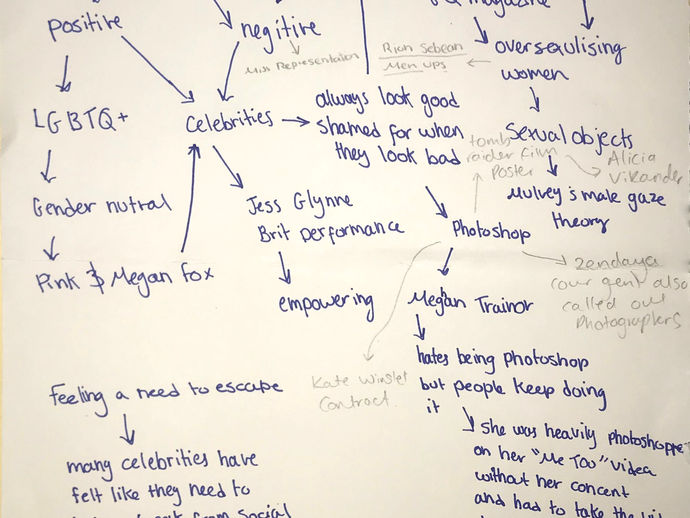 positive
negitive
magazine
Miss Representation
Rion Sebean
Men ups
oversexulising
women
LGBTQ+
celebrities
always look good
shamed for when
they look bad
Sexual objects
tomb
raider film
Poster
Alicia
Vikander
Mulvey's male gaze
theory
Gender nutral
Jess Glynne
Brit performance
Photoshop
Pink & Megan fox
empowering
Meghan Trainor
zendaya
cour gent also
called out
Photographers
hates being photoshop
but people keep doing
it
Feeling a need to escape
Kate Winslet
Contract
She was heavily photoshoppe
on her "Me Too" Video
without her concent
and had to take the
many celebrities have
felt like they need to
from social